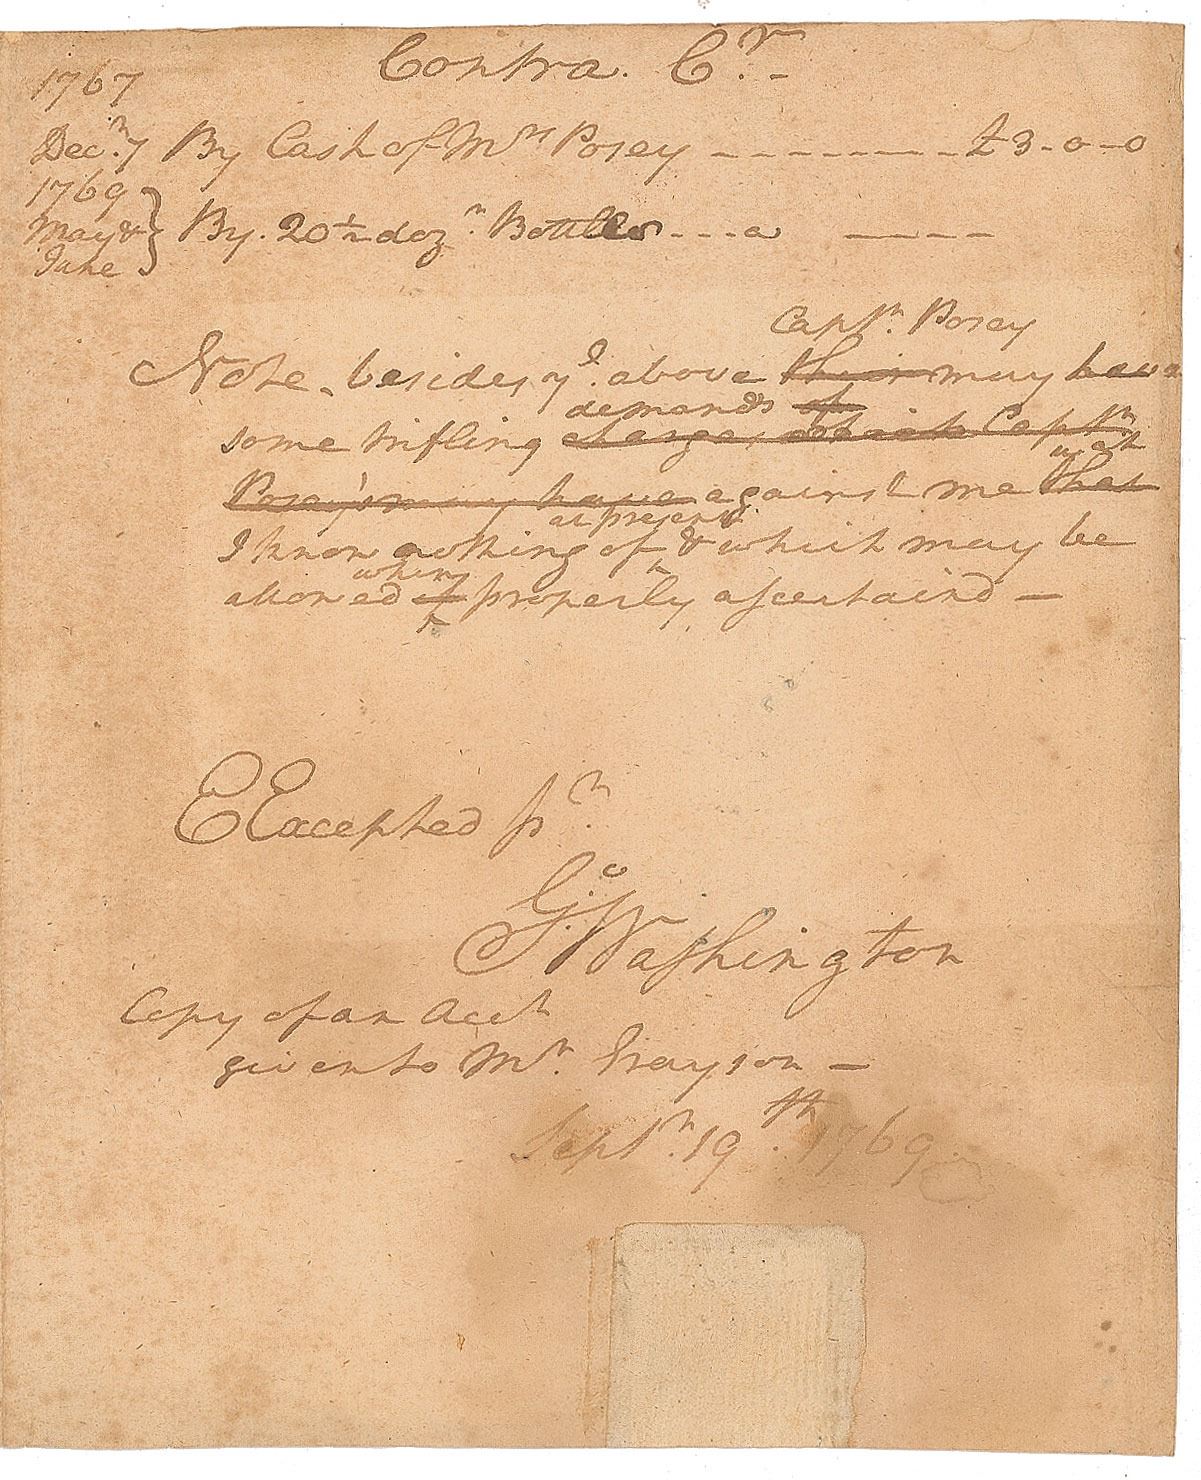 Contra. Cr.
1767
Decr. 7 By Cash of Mrs Posey £3-0-0
1769
May & By. 20½ dozn. Bottles a
June
Captn. Posey
Note, besides ye. above their may have
demands of
some trifling charges, which Captn.
wch
Posey's may have against me that
at present
I know nothing of & which may be
when
allowed if properly ascertaind —
E Excepted pr.
Go. Washington
Copy of an Acct
given to Mr. Grayson —
Septr. 19th. 1769.